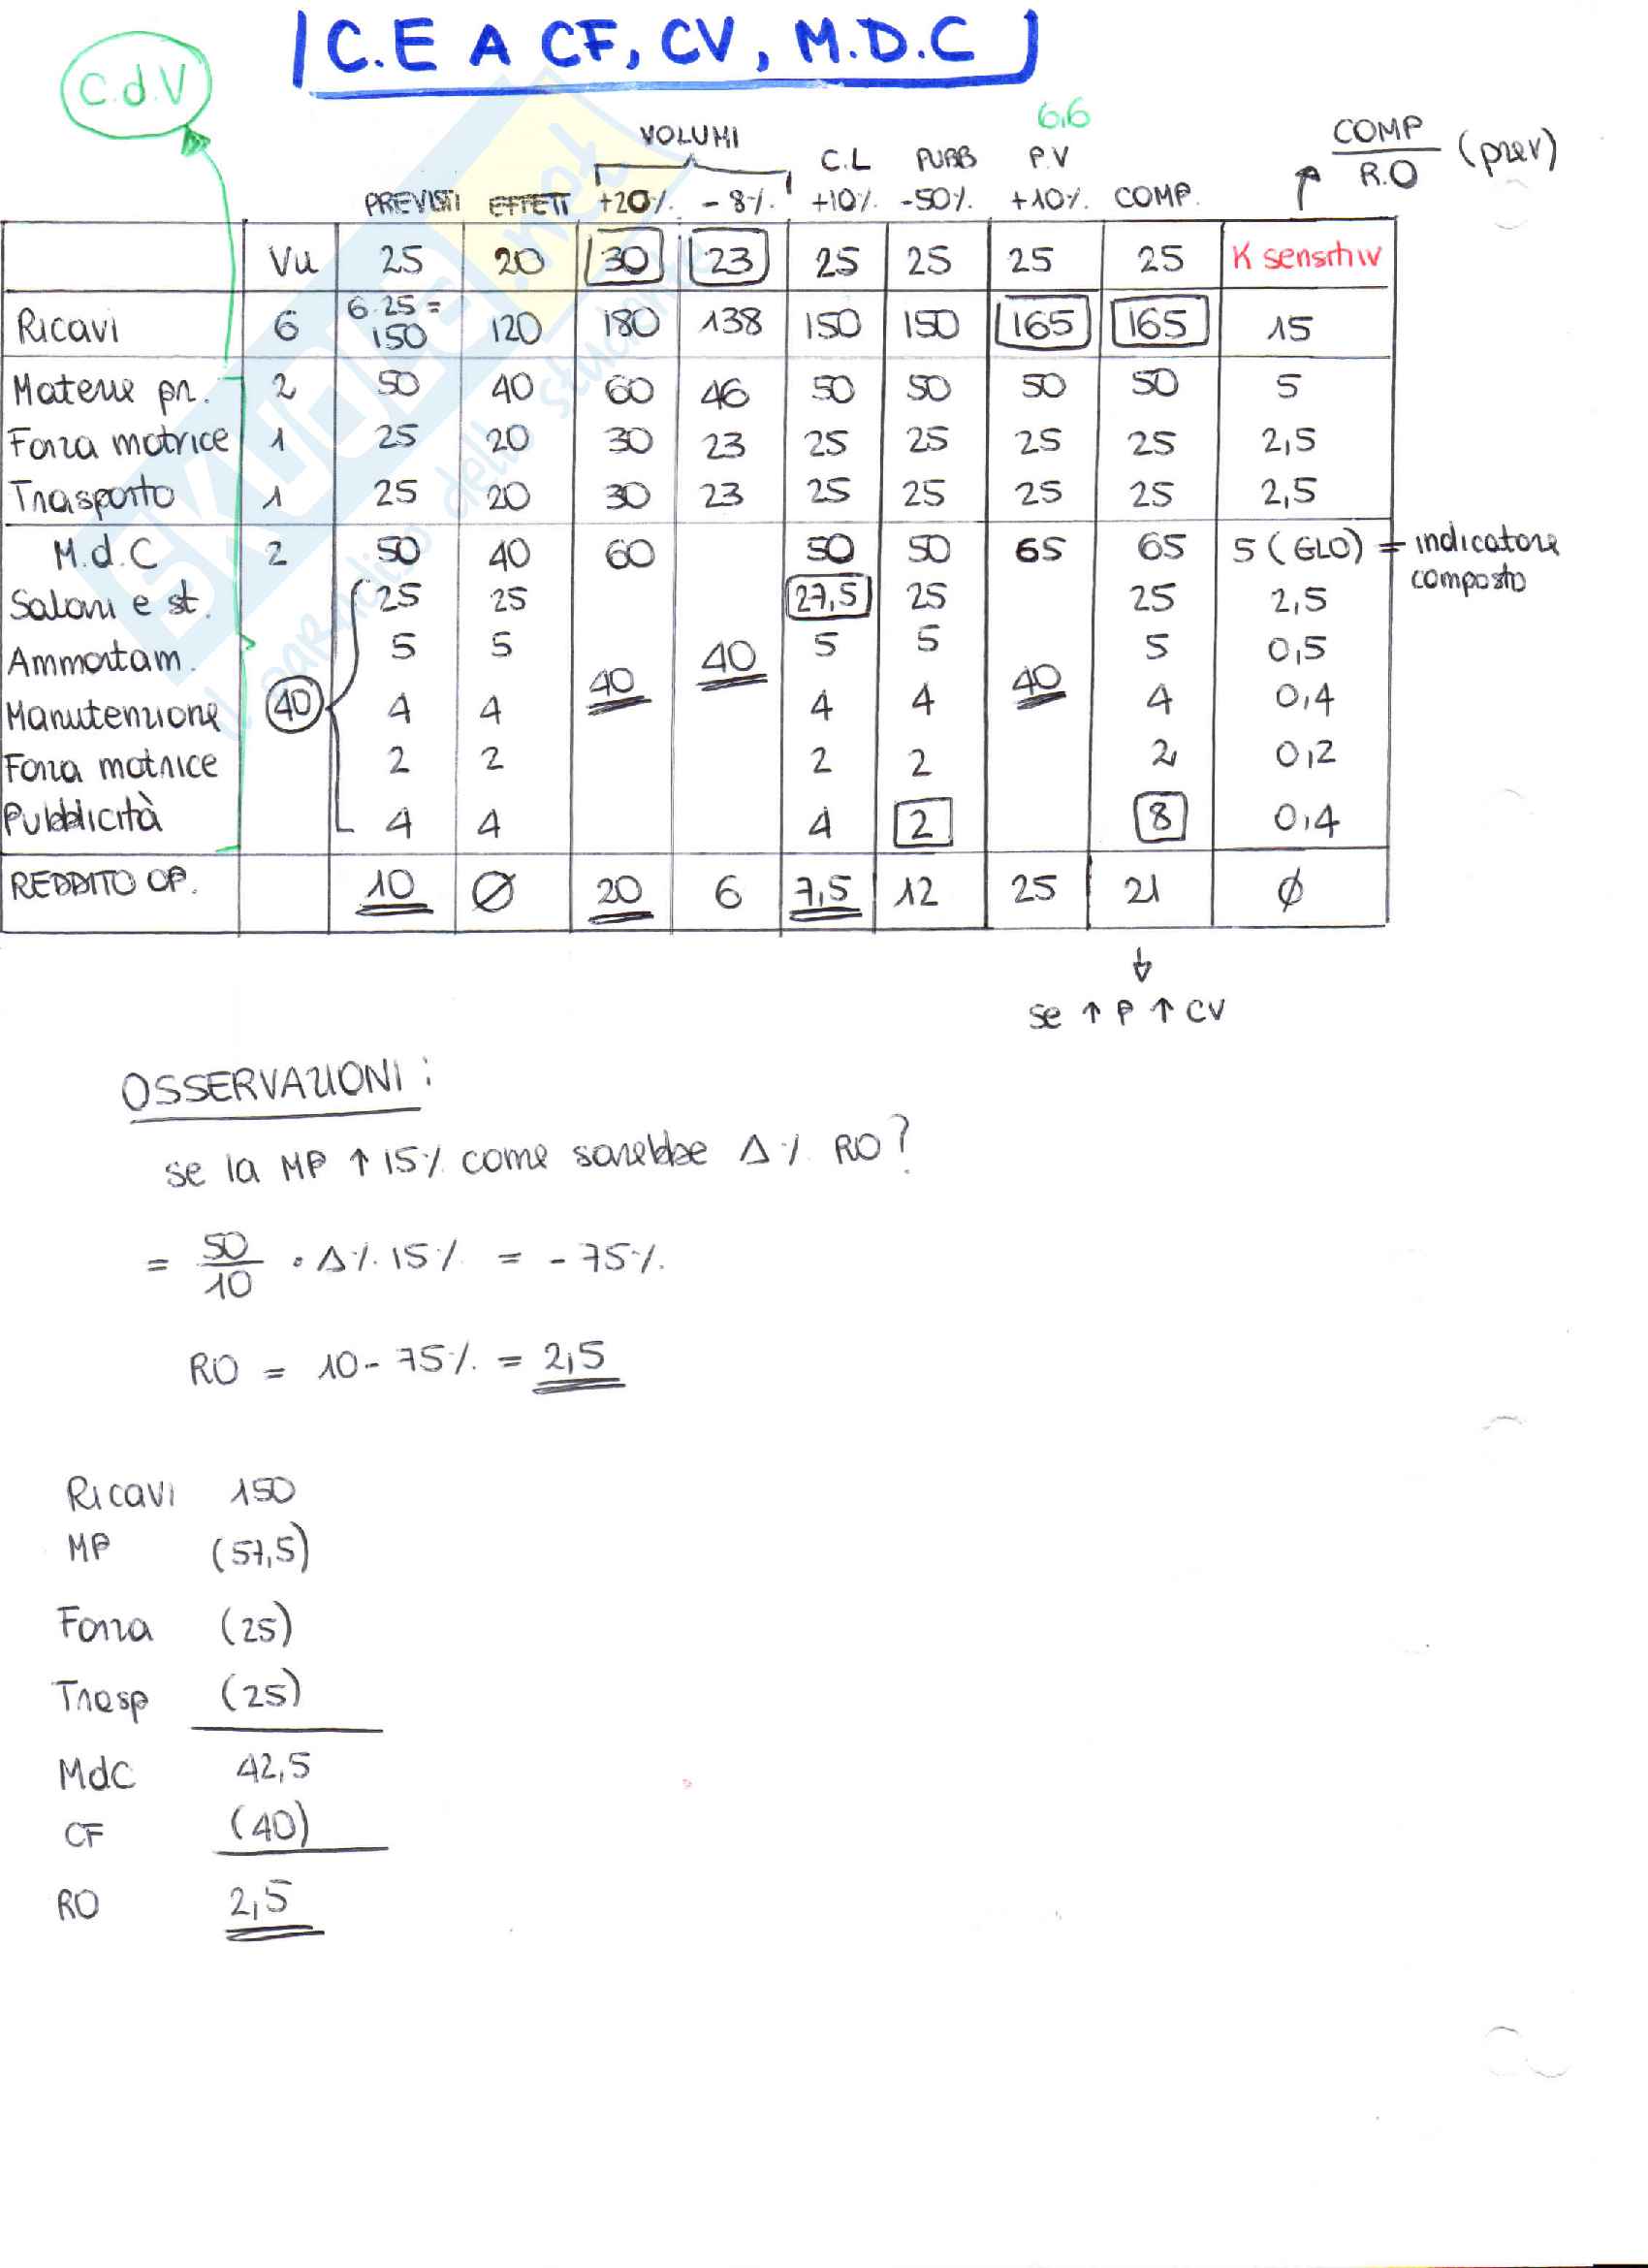 C.E A CF, CV, M.D.C
C.d.V
VOLUMI 6,6 COMP/R.O (prev)
C.L PUBB P.V
PREVISTI EFFETT +20% -8% +10% -50% +10% COMP.
Vu 25 20 30 23 25 25 25 25 K sensitiv
6·25=
Ricavi 6 150 120 180 138 150 150 165 165 15
Materie pr. 2 50 40 60 46 50 50 50 50 5
Forza motrice 1 25 20 30 23 25 25 25 25 2,5
Trasporto 1 25 20 30 23 25 25 25 25 2,5
M.d.C 2 50 40 60 50 50 65 65 5 (GLO) = indicatore composto
Salari e st. 25 25 27,5 25 25 2,5
Ammortam. 5 5 40 5 5 5 0,5
Manutenzione 40 4 4 40 4 4 40 4 0,4
Forza motrice 2 2 2 2 2 0,2
Pubblicità 4 4 4 2 8 0,4
REDDITO OP. 10 Ø 20 6 7,5 12 25 21 Ø
se ↑ P ↑ CV
OSSERVAZIONI:
se la MP ↑ 15% come sarebbe Δ% RO?
= 50/10 · Δ% 15% = -75%
RO = 10 - 75% = 2,5
Ricavi 150
MP (57,5)
Forza (25)
Trasp (25)
MdC 42,5
CF (40)
RO 2,5
SKUOLA.net
il paradiso dello studente